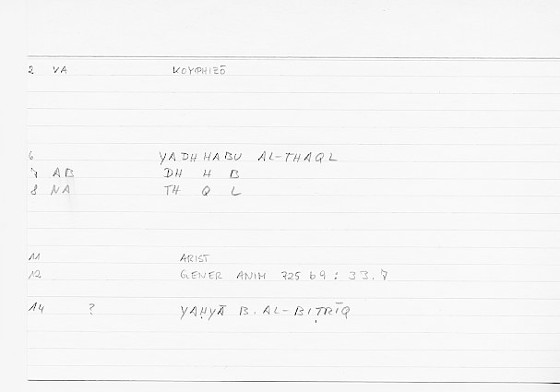 2 VA ΚΟΥΦΙΖΩ
6 YADHHABU AL-THAQL
7 AB DH H B
8 NA TH Q L
11 ARIST
12 GENER ANIM 725 b9 : 33.7
14 ? YAḤYĀ B. AL-BIṬRĪQ